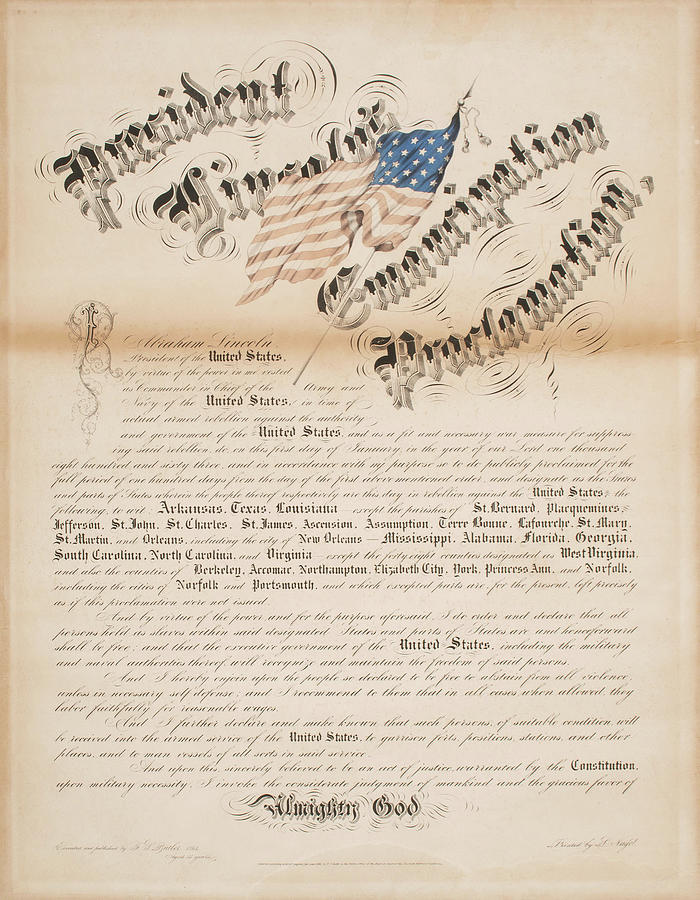 President
Lincoln's
Emancipation
Proclamation.
I Abraham Lincoln,
President of the United States,
by virtue of the power in me vested
as Commander in Chief of the Army and
Navy of the United States, in time of
actual armed rebellion against the authority
and government of the United States, and as a fit and necessary war measure for suppress-
ing said rebellion, do, on this first day of January, in the year of our Lord one thousand
eight hundred and sixty three, and in accordance with my purpose so to do publicly proclaimed for the
full period of one hundred days from the day of the first above mentioned order, and designate as the States
and parts of States wherein the people thereof respectively are this day in rebellion against the United States, the
following, to wit: Arkansas, Texas, Louisiana — except the parishes of St. Bernard, Placquemines,
Jefferson, St. John, St. Charles, St. James, Ascension, Assumption, Terre Bonne, Lafourche, St. Mary,
St. Martin, and Orleans, including the city of New Orleans — Mississippi, Alabama, Florida, Georgia,
South Carolina, North Carolina, and Virginia — except the forty eight counties designated as West Virginia,
and also the counties of Berkeley, Accomac, Northampton, Elizabeth City, York, Princess Ann, and Norfolk,
including the cities of Norfolk and Portsmouth, and which excepted parts are, for the present, left precisely
as if this proclamation were not issued.
And by virtue of the power, and for the purpose aforesaid, I do order and declare that all
persons held as slaves within said designated States and parts of States are and henceforward
shall be free; and that the executive government of the United States, including the military
and naval authorities thereof, will recognize and maintain the freedom of said persons.
And I hereby enjoin upon the people so declared to be free to abstain from all violence,
unless in necessary self defense; and I recommend to them that in all cases, when allowed, they
labor faithfully for reasonable wages.
And I further declare and make known that such persons, of suitable condition, will
be received into the armed service of the United States, to garrison forts, positions, stations, and other
places, and to man vessels of all sorts in said service.
And upon this, sincerely believed to be an act of justice, warranted by the Constitution,
upon military necessity, I invoke the considerate judgment of mankind and the gracious favor of
Almighty God
Executed and published by F. S. Butler, 1863.
Aged 15 years.
Printed by L. Nagel.